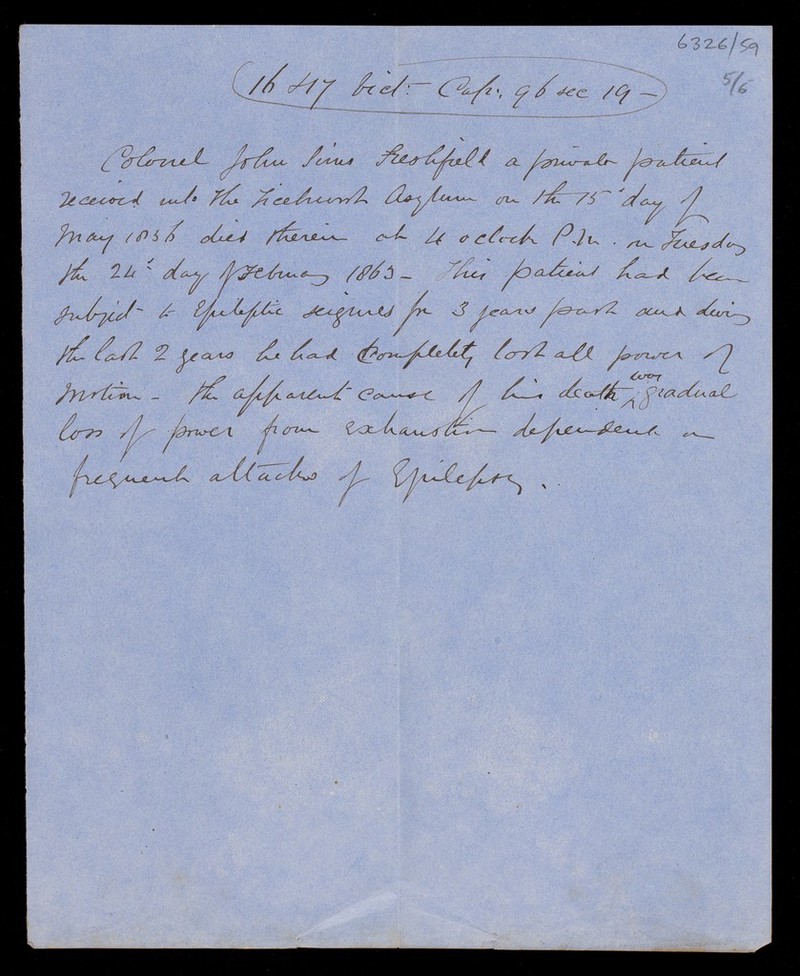 6326/59
5/6
16 & 17 Vict: Cap: 96 sec 19 -
Colonel John Sims Freshfield a private patient
received into The Ticehurst Asylum on the 15 day of
May 1856 died therein at 4 oclock P.M. on Tuesday
the 24 day of February 1863 - This patient had been
subject to Epileptic seizures for 3 years past and during
the last 2 years he had completely lost all power of
motion - the apparent cause of his death was gradual
loss of power from exhaustion dependent on
frequent attacks of Epilepsy.